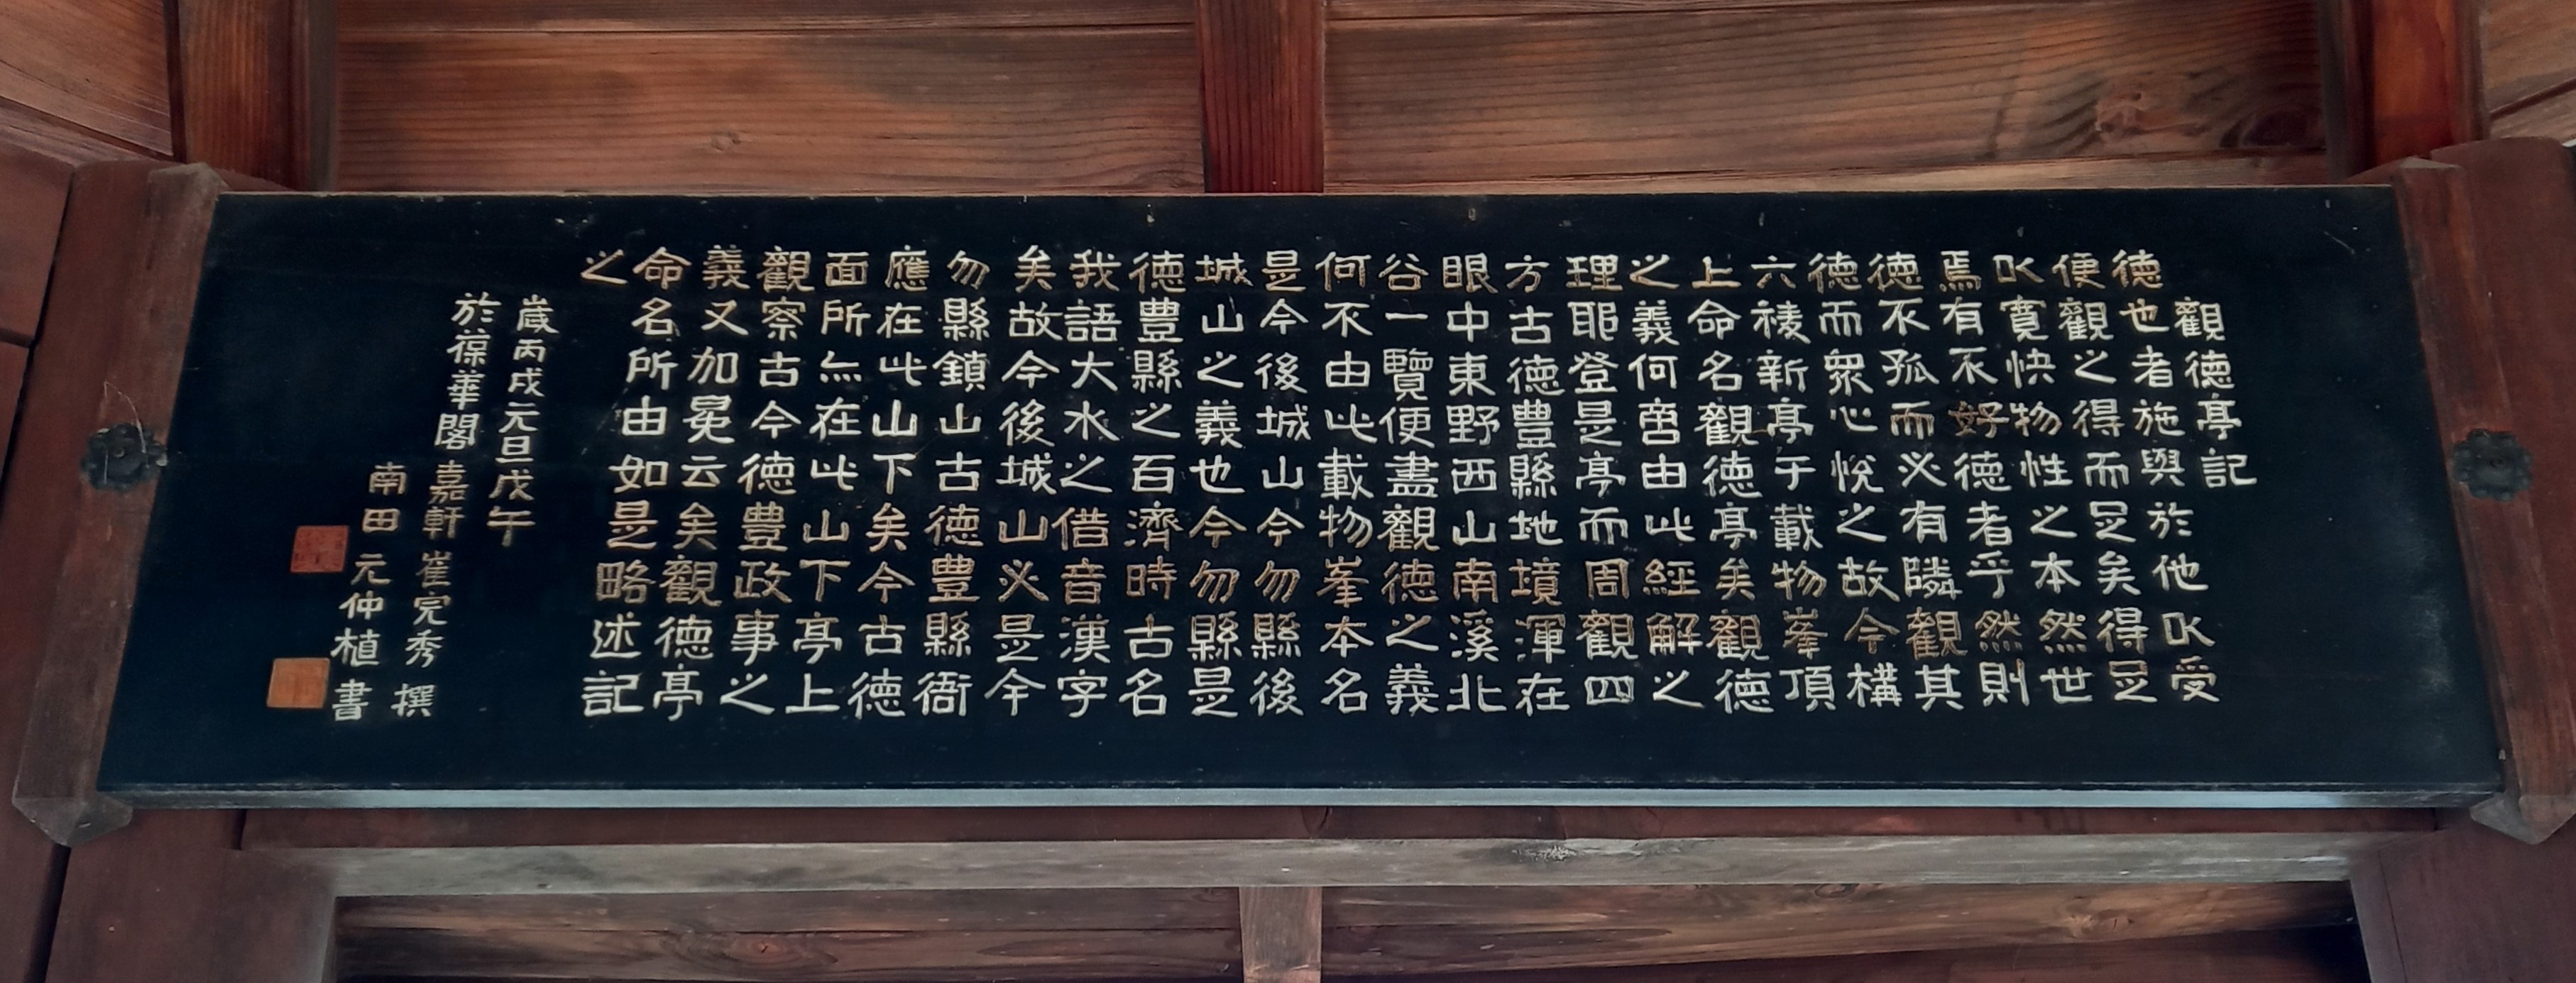 觀德亭記
德也者施與於他㕥受
便觀之得而足矣得足
㕥寬快物性之本然世
焉有不好德者乎然則
德不孤而必有隣觀其
德而衆心悅之故今構
六稜新亭于載物峯頂
上命名觀德亭矣觀德
之義何啻由此經解之
理耶登是亭而周觀四
方古德豊縣地境渾在
眼中東野西山南溪北
谷一覽便盡觀德之義
何不由此載物峯本名
是今後城山今勿縣後
城山之義也今勿縣是
德豊縣之百濟時古名
我語大水之借音漢字
矣故今後城山必是今
勿縣鎮山古德豊縣衙
應在此山下矣今古德
面所亦在此山下亭上
觀察古今德豊政事之
義又加冕云矣觀德亭
命名所由如是略述記
之
歲丙戌元旦戊午
於葆華閣 嘉軒 崔完秀 撰
南田 元仲植 書